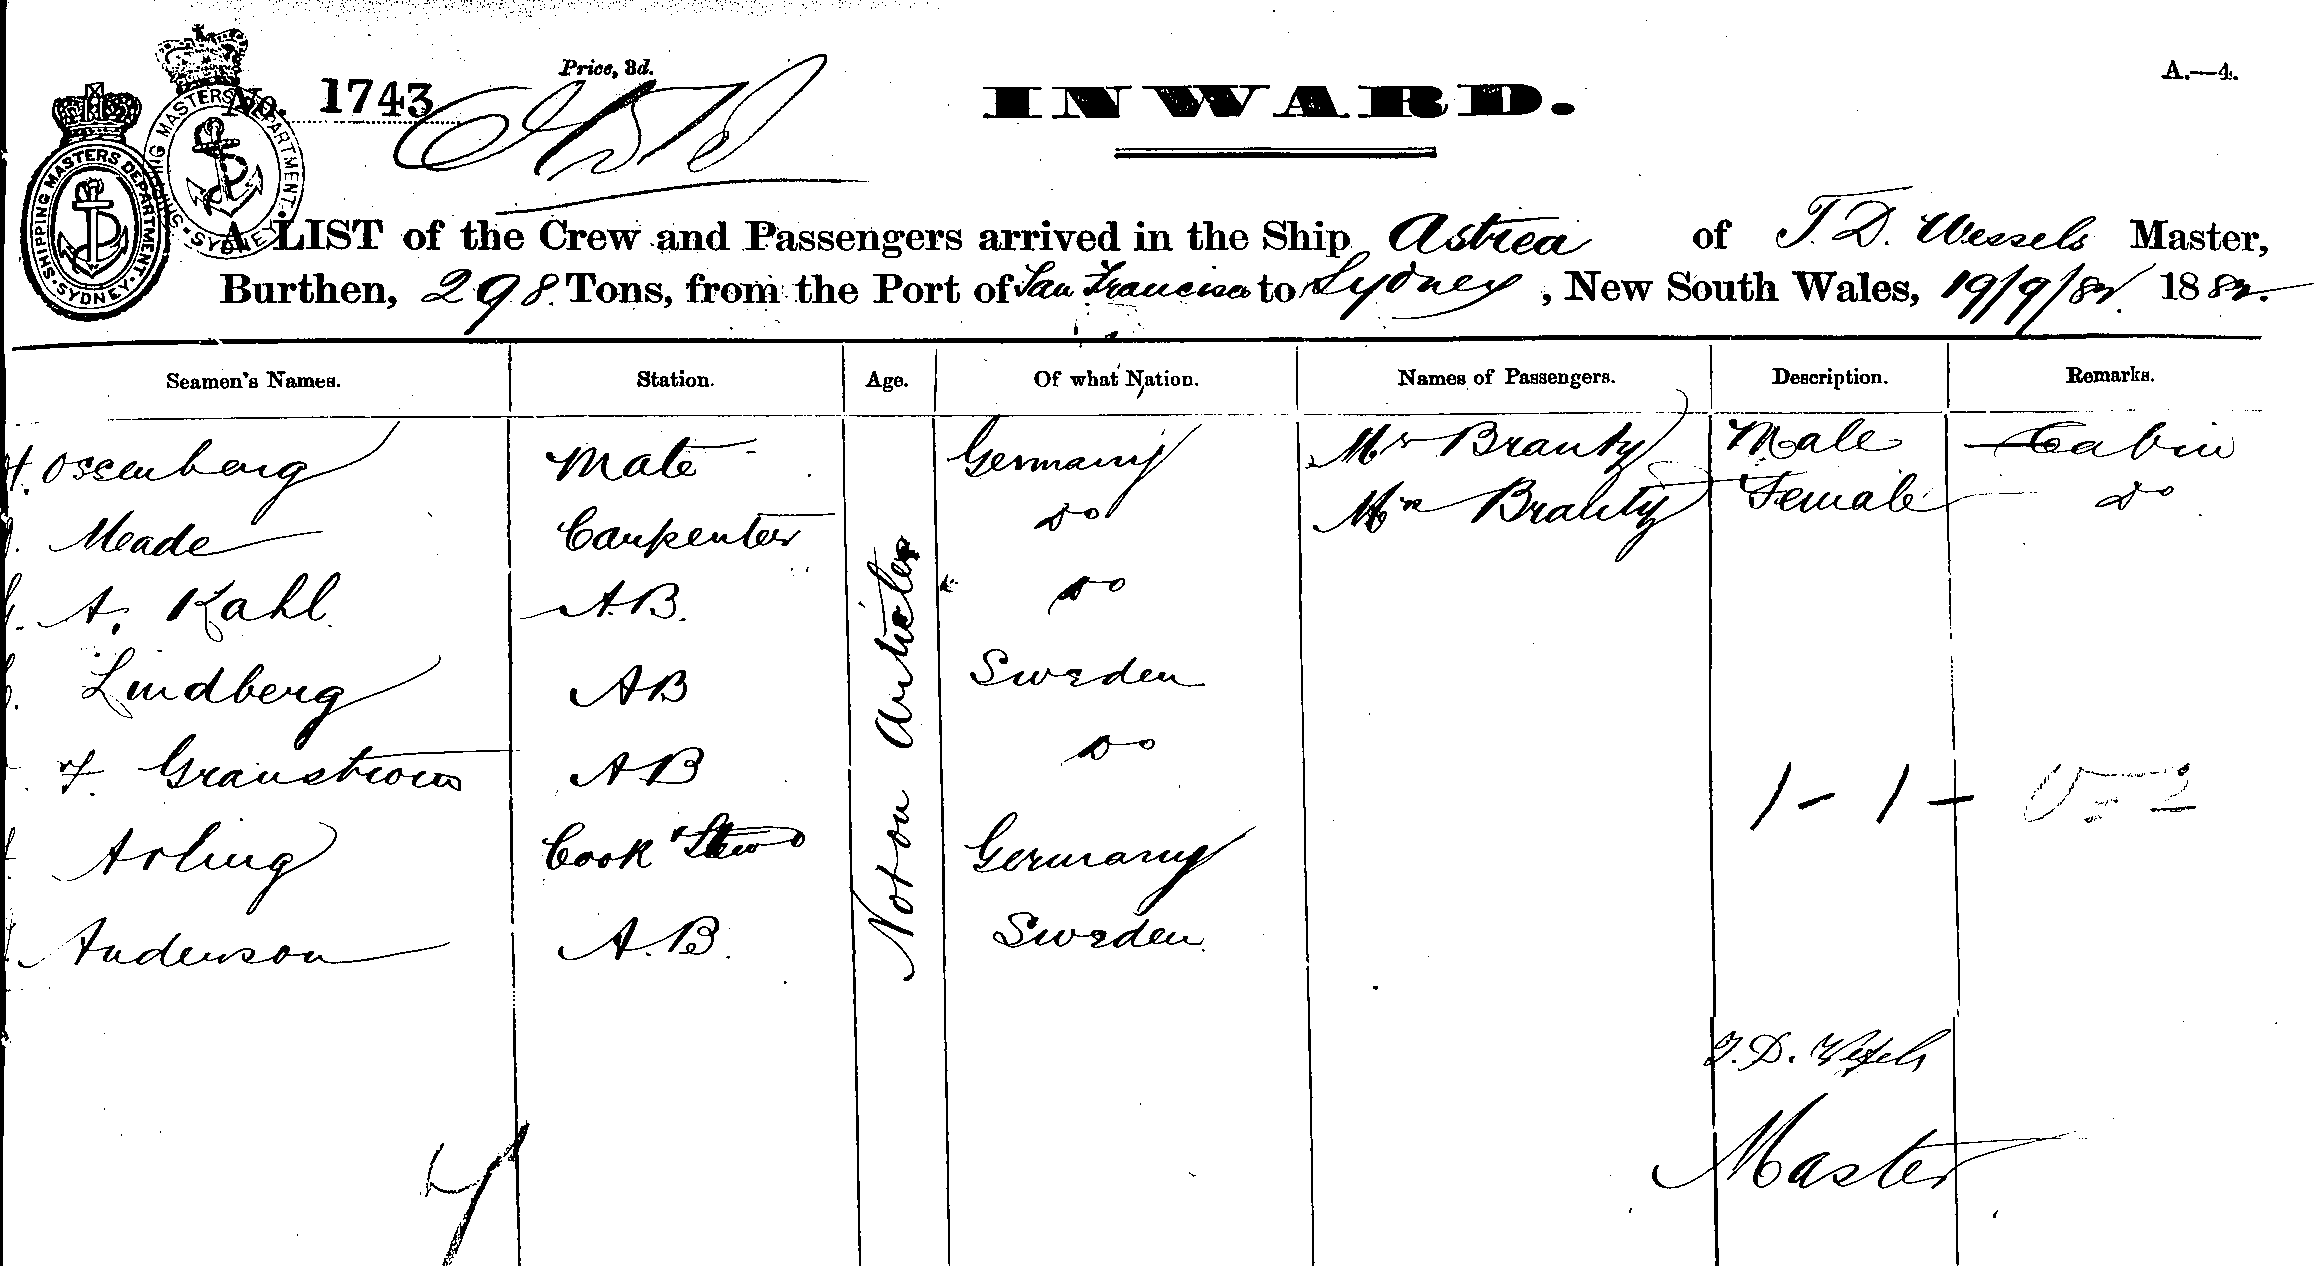 Price, 3d.
A.—4.
No. 1743
INWARD.
SHIPPING MASTERS DEPARTMENT. SYDNEY.
SHIPPING MASTERS DEPARTMENT. SYDNEY
A LIST of the Crew and Passengers arrived in the Ship Astrea of T. D. Wessels Master,
Burthen, 298 Tons, from the Port of San Francisco to Sydney, New South Wales, 19/9/82 1882.
Seamen's Names. Station. Age. Of what Nation. Names of Passengers. Description. Remarks.
H. Ossenberg Mate Germany Mr Brauty Male Cabin
Meade Carpenter Do Mrs Brauty Female Do
A. Kahl A.B. Do
Lindberg AB Sweden
F. Granstrom AB Do
1 - 1 -
Arling Cook & Stewd Germany
Anderson A.B. Sweden
Not on Articles
T. D. Wessels
Master
7